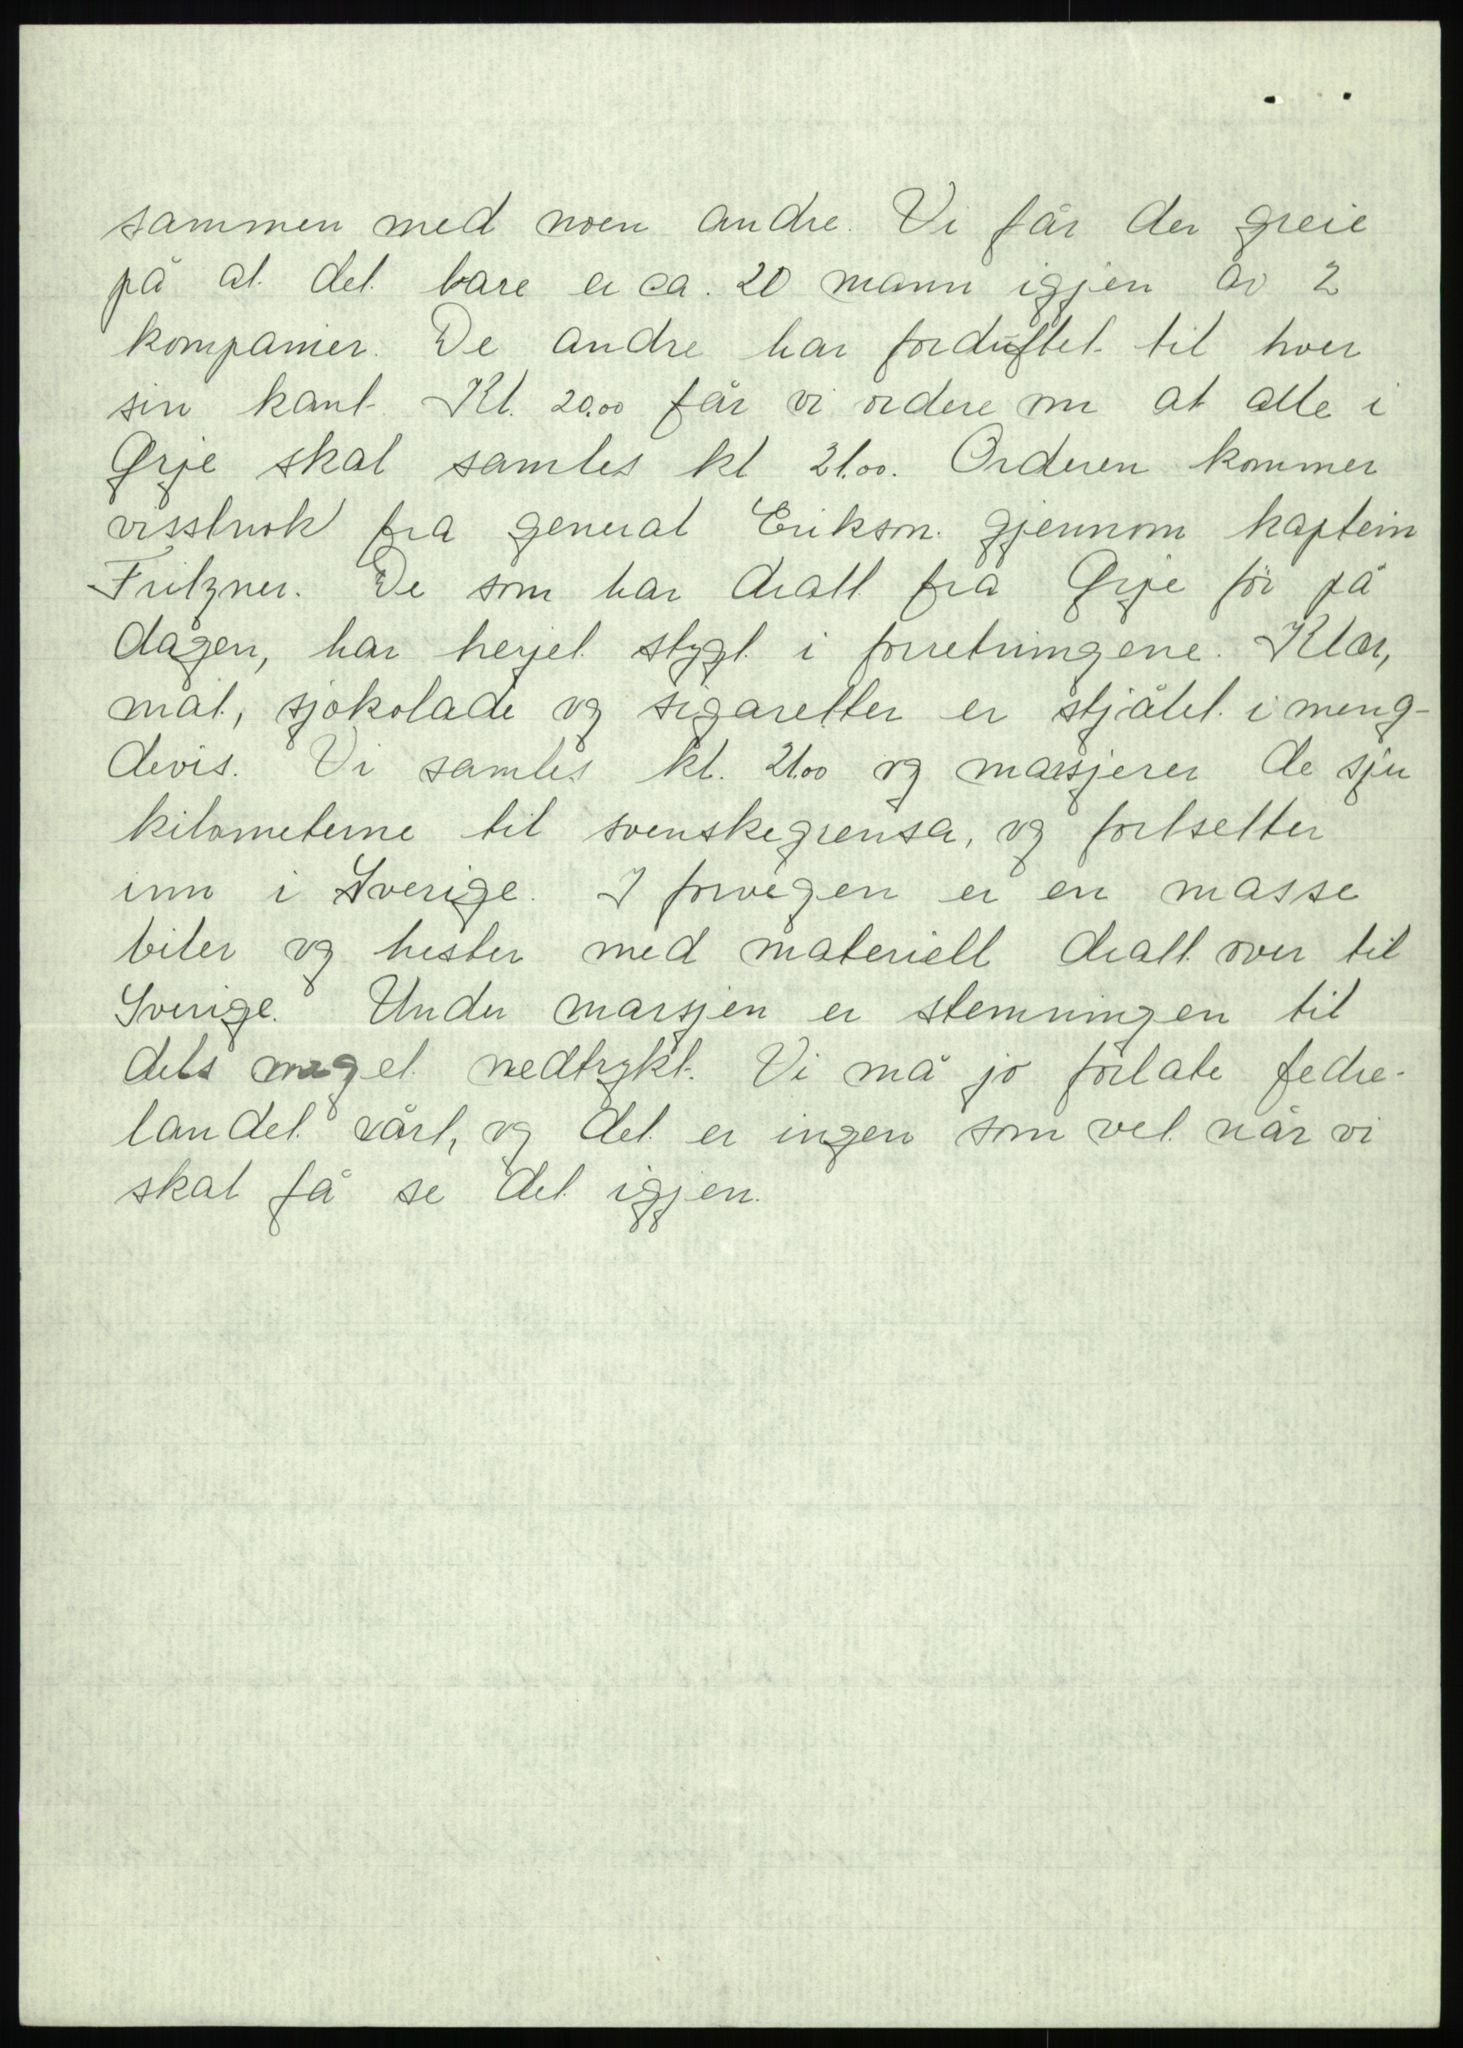 sammen med noen andre. Vi får der greie
på at det bare er ca. 20 mann igjen av 2
kompanier. De andre har forduftet til hver
sin kant. Kl. 20.00 får vi ordre om at alle i
Ørje skal samles kl 21.00. Orderen kommer
visstnok fra general Erikson. gjennom kaptein
Fritzner. De som har dratt fra Ørje før på
dagen, har herjet stygt i forretningene. Klær,
mat, sjokolade og sigaretter er stjålet i meng-
devis. Vi samles kl. 21.00 og marsjerer de sju
kilometerne til svenskegrensa, og fortsetter
inn i Sverige. I forvegen er en masse
biler og hester med materiell dratt over til
Sverige. Under marsjen er stemningen til
dels meget nedtrykt. Vi må jo forlate fedre-
landet vårt, og det er ingen som vet når vi
skal få se det igjen.